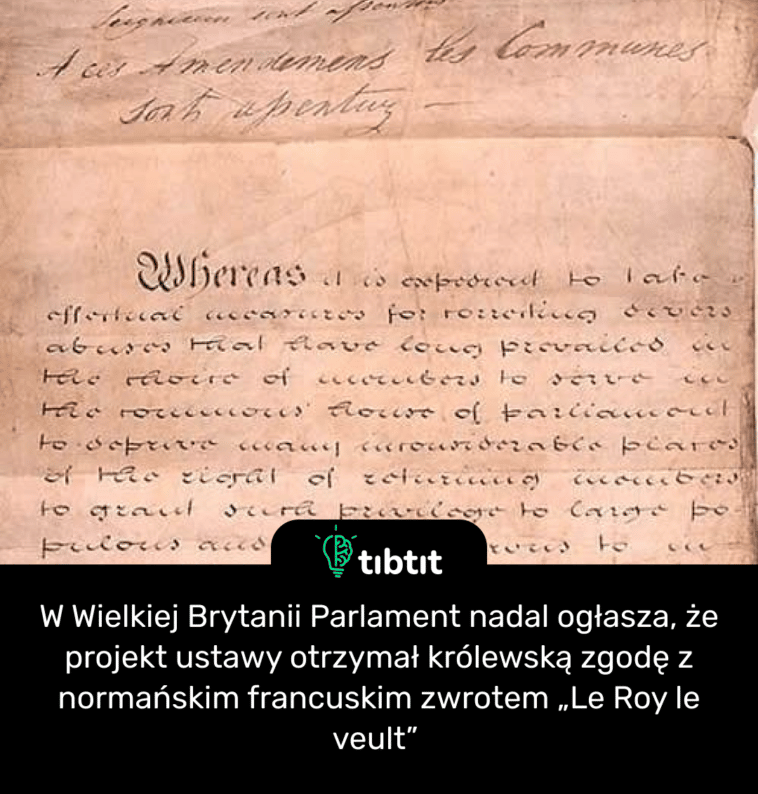 A ces Amendemens les Communes
sont assentuz
Whereas it is expedient to take
effectual measures for correcting divers
abuses that have long prevailed in
the choice of members to serve in
the commons' house of parliament
to deprive many inconsiderable places
of the right of returning members
to grant such privilege to large po
pulous and to in
tibtit
W Wielkiej Brytanii Parlament nadal ogłasza, że
projekt ustawy otrzymał królewską zgodę z
normańskim francuskim zwrotem „Le Roy le
veult”